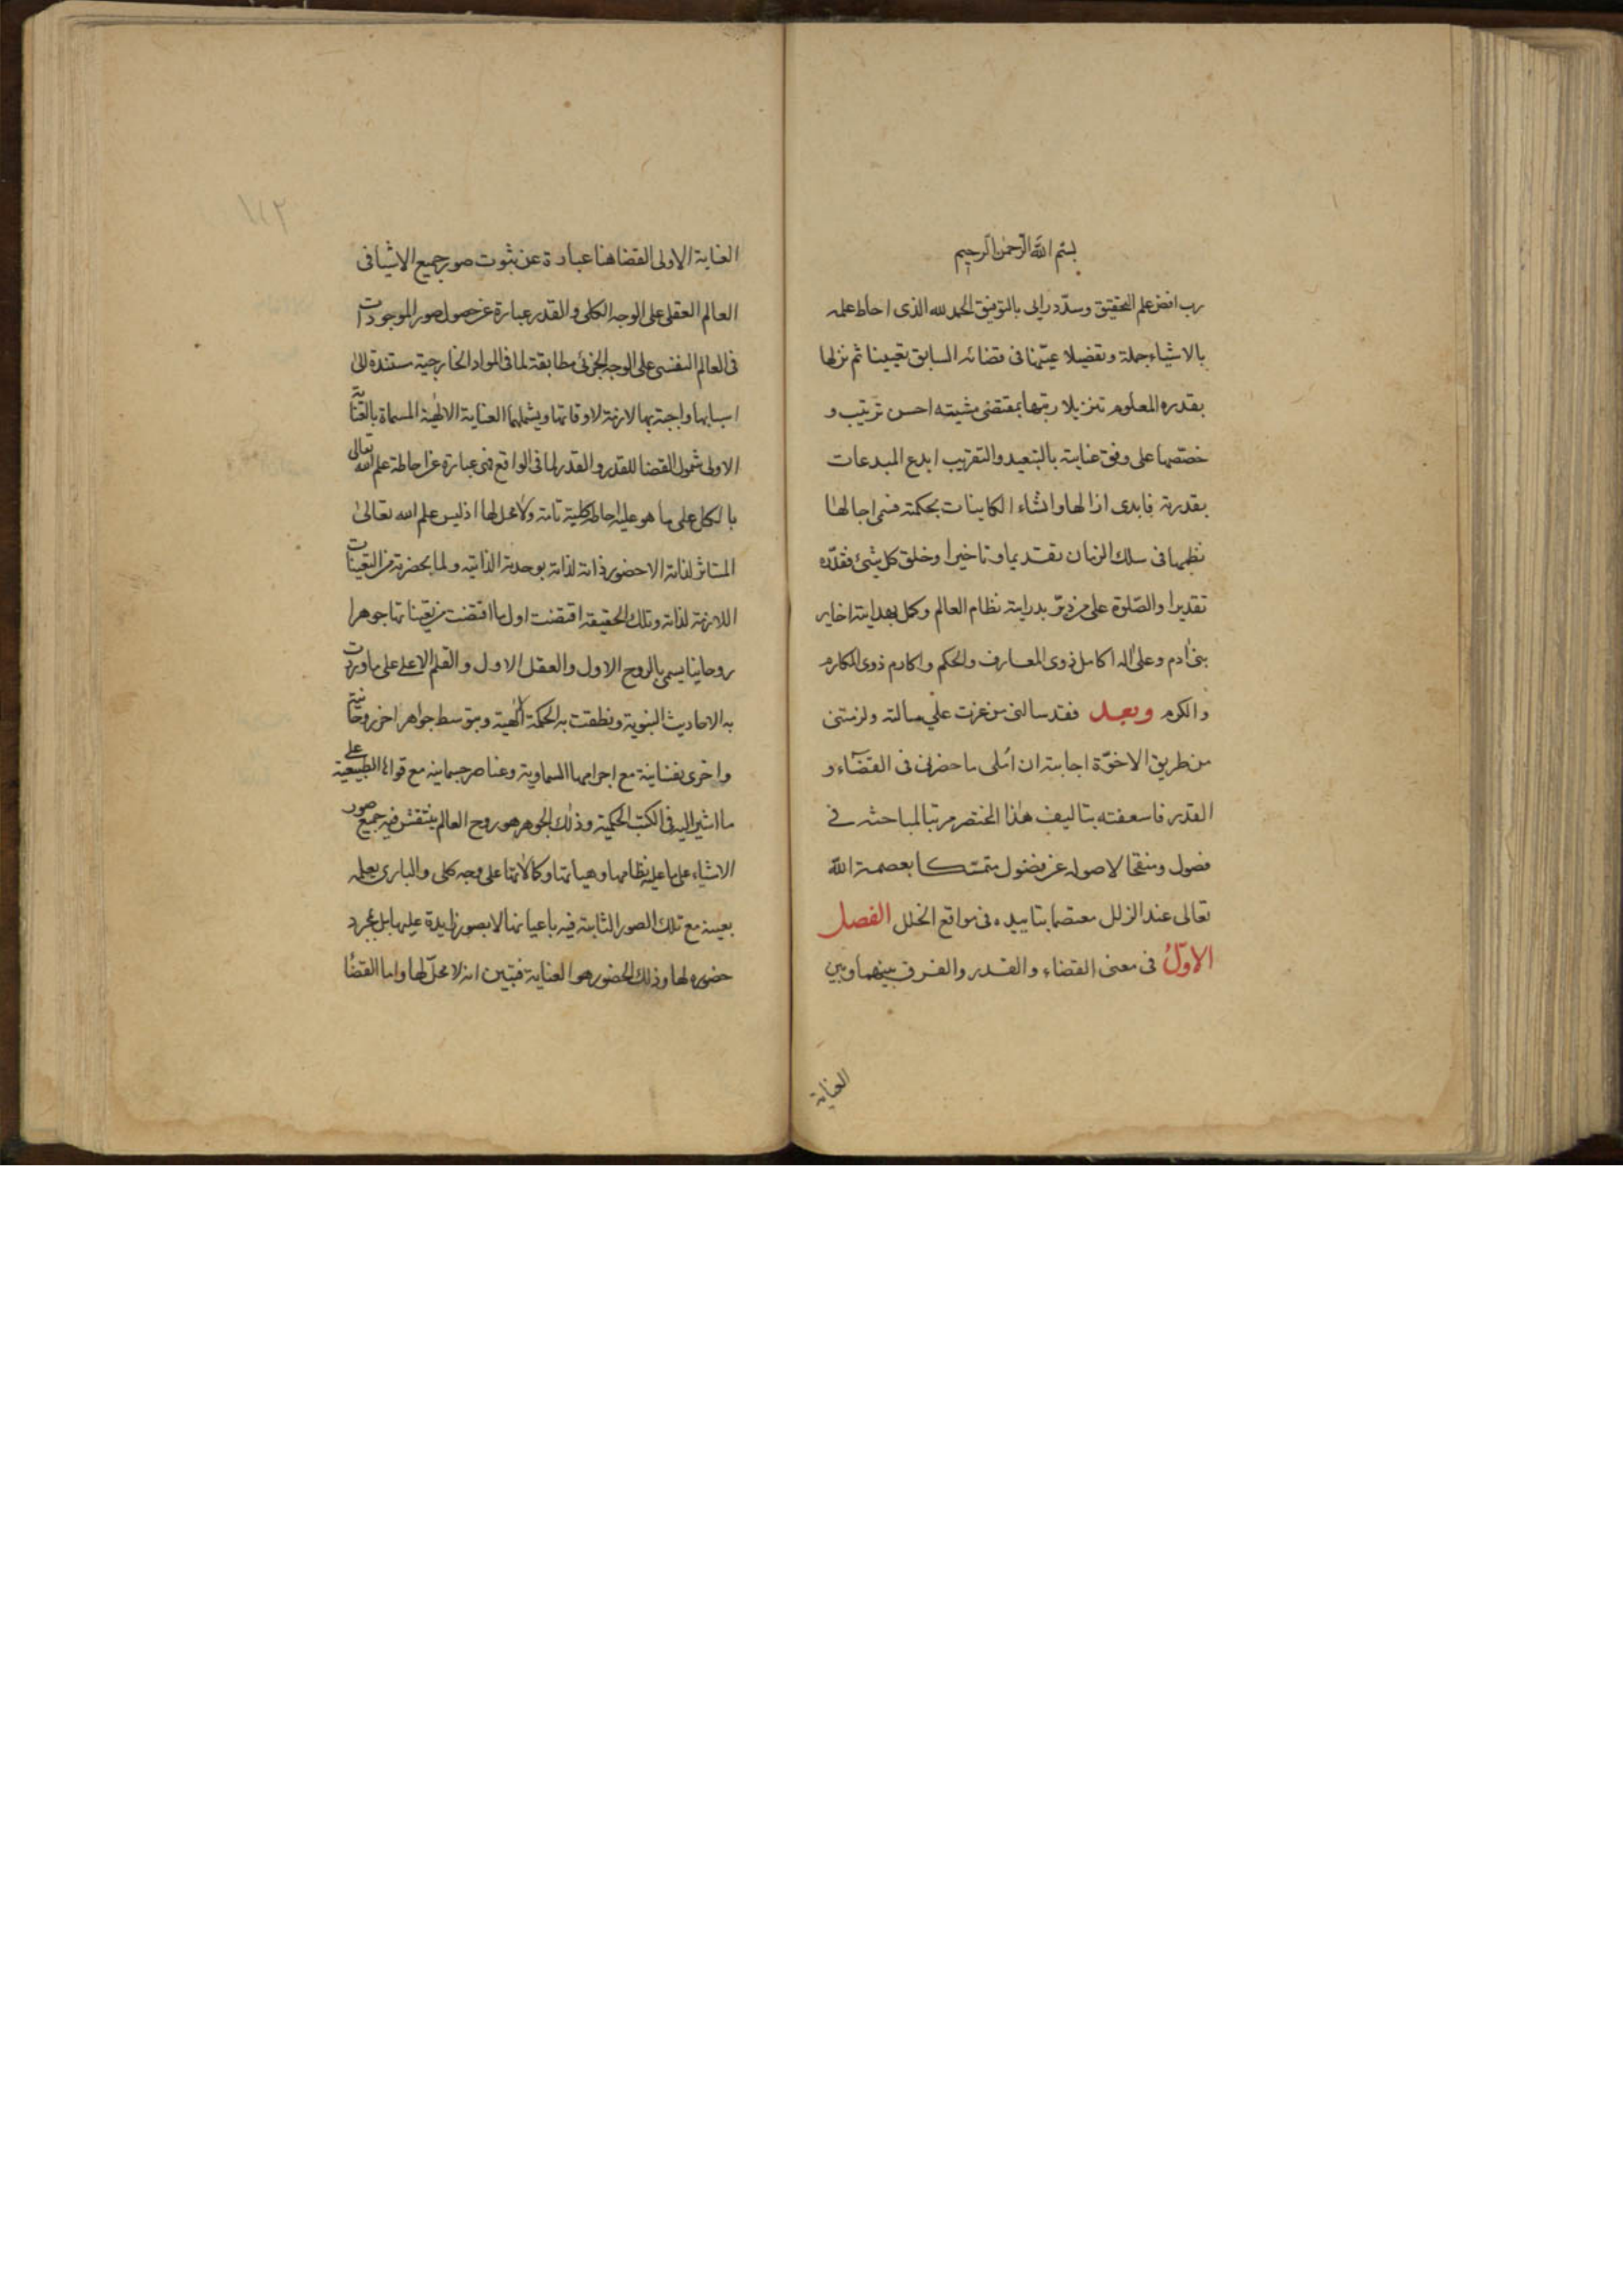 بسم الله الرحمن الرحيم
رب افض علم التحقيق وسدد رايى بالتوفيق الحمد لله الذى احاط علمه
بالاشياء جملة وتفصيلا عيّنها فى قضائه السابق تعيينا ثم نزلها
بقدره المعلوم تنزيلا رتبها بمقتضى مشيته احسن ترتيب و
خصّصها على وفق عنايته بالتبعيد والتقريب ابدع المبدعات
بقدرته فابدى ازالها وانشاء الكاينات بحكمته فسمى اجالها
نظمها فى سلك الزمان تقديما وتاخيرا وخلق كل شئ فقدّره
تقديرا والصّلوة على من دبّر بدرايته نظام العالم وكمل بهدايته اخاير
بنى ادم وعلى اله اكامل ذوى المعارف والحكم واكارم ذوى المكارم
والكرم وبعد فقد سالنى من عزت علي مسالته ولزمتنى
من طريق الاخوّة اجابته ان املى ما حضرنى فى القضاء و
القدر فاسعفته بتاليف هذا المختصر مرتبا لمباحثه فى
فصول ومنقحا لاصوله عن فضول متمسّكا بعصمة الله
تعالى عند الزلل معتصما بتاييده فى مواقع الخلل الفصل
الاوّل فى معنى القضاء والقدر والفرق بينهما وبين
العناية
١١٢
العناية الاولى القضا هنا عبارة عن ثبوت صور جميع الاشيا فى
العالم العقلى على الوجه الكلى والقدر عبارة عن حصول صور الموجودات
فى العالم النفسى على الوجه الجزئى مطابقة لما فى المواد الخارجية مستندة الى
اسبابها واجبة بها لازمة لاوقاتها ويشملهما العناية الالهية المسماة بالعناية
الاولى شمول القضا للقدر والقدر لما فى الواقع فهى عبارة عن احاطة علم الله تعالى
بالكل على ما هو عليه احاطة كلية تامة ولا محل لها اذ ليس علم الله تعالى
لذاته الا حضور ذاته لذاته بوحدته الذاتية ولما بحضرته من التعينات
اللازمة لذاته وتلك الحقيقة اقتضت اول ما اقتضت من تعيناتها جوهرا
روحانيا يسمى بالروح الاول والعقل الاول والقلم الاعلى على ما وردت
به الاحاديث النبوية ونطقت به الحكمة الالهية وبتوسط جواهر اخر روحانية
واخرى نفسانية مع اجرامها السماوية وعناصر جسمانية مع قواها الطبيعية على
ما اشير اليه فى الكتب الحكمية وذلك الجوهر هو روح العالم ينتقش فيه جميع صور
الاشياء على ما عليه نظامها وهيأتها وكمالاتها على وجه كلى والبارى يعلمه
بعينه مع تلك الصور الثابتة فيه باعيانها لا بصور زايدة عليها بل بمجرد
حضوره لها وذلك الحضور هو العناية فتبين انه لا محلّ لها واما القضا